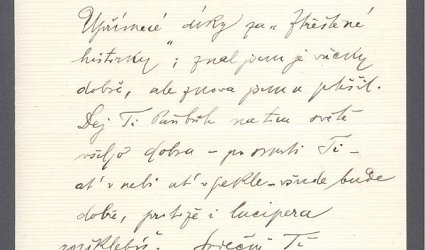 Upřímné díky za „Ztřeštěné
historky“; znal jsem je všecky
dobře, ale znova jsem se potěšil.
Dej Ti Pánbůh na tom světě
všeho dobra – po smrti Ti –
ať v nebi ať v pekle – všude bude
dobře, protože i lucipera
rozšklebíš. Srdečně Tě